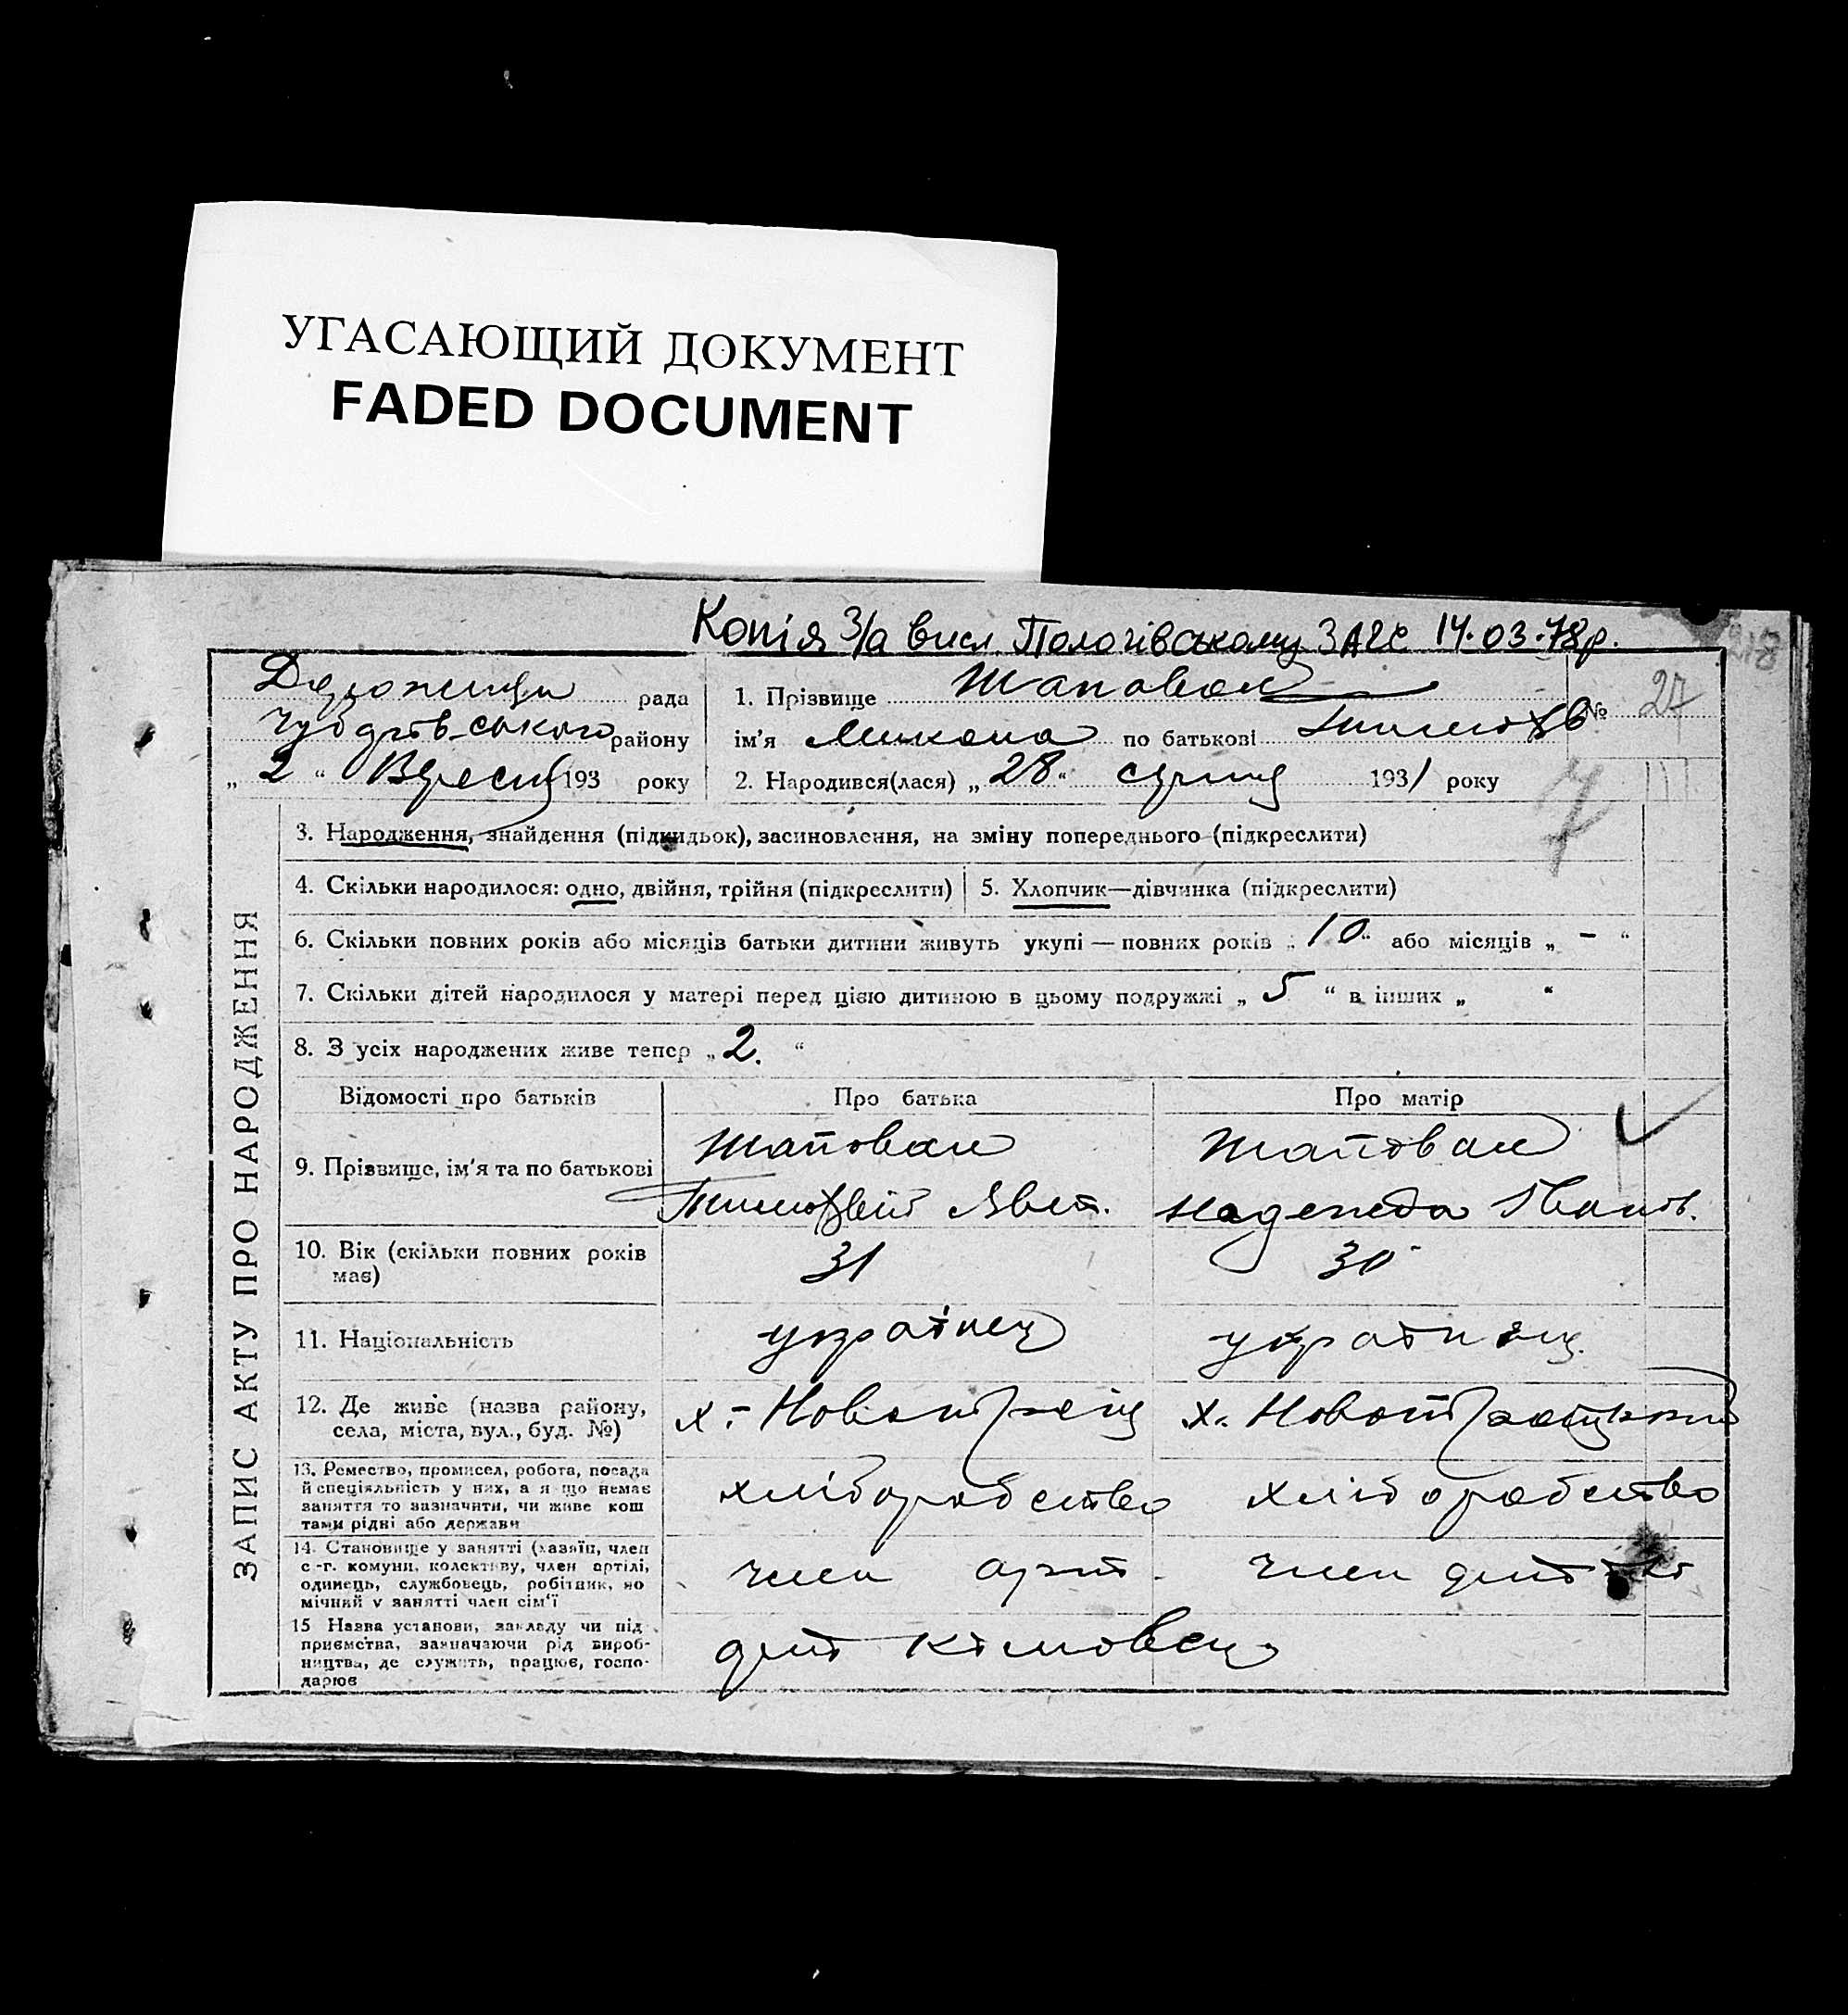 УГАСАЮЩИЙ ДОКУМЕНТ
FADED DOCUMENT
Копія З/а висл. Пологівському ЗАГС 14.03.78р.
рада
району
„ 2 “ Вересня 193 року
1. Прізвище Шаповал
ім'я Микола по батькові Тимофів
№ 27
2. Народився(лася) „ 28 “ серпня 1931 року
3. Народження, знайдення (підкидьок), засиновлення, на зміну попереднього (підкреслити)
4. Скільки народилося: одно, двійня, трійня (підкреслити)
5. Хлопчик—дівчинка (підкреслити)
6. Скільки повних років або місяців батьки дитини живуть укупі — повних років „ 10 “ або місяців „ - “
7. Скільки дітей народилося у матері перед цією дитиною в цьому подружжі „ 5 “ в інших „ “
8. З усіх народжених живе тепер „ 2. “
ЗАПИС АКТУ ПРО НАРОДЖЕННЯ
Відомості про батьків
Про батька
Про матір
9. Прізвище, ім'я та по батькові
Шаповал
Тимофвій
Шаповал
Надежда Іванів.
10. Вік (скільки повних років
має)
31
30
11. Національність
українец
12. Де живе (назва району,
села, міста, вул., буд. №)
х.-
х.
13. Ремество, промисел, робота, посада
й спеціяльність у них, а я що немає
заняття то зазначити, чи живе кош
тами рідні або держави
хліборобство
хліборобство
14. Становище у занятті (хазяїн, член
с -г. комуни, колективу, член артілі,
одинець, службовець, робітник, по
мічний у занятті член сім'ї
член арт.
член
15 Назва установи, закладу чи під
приємства, зазначаючи рід вироб-
ництва, де служить, працює, госпо-
дарює